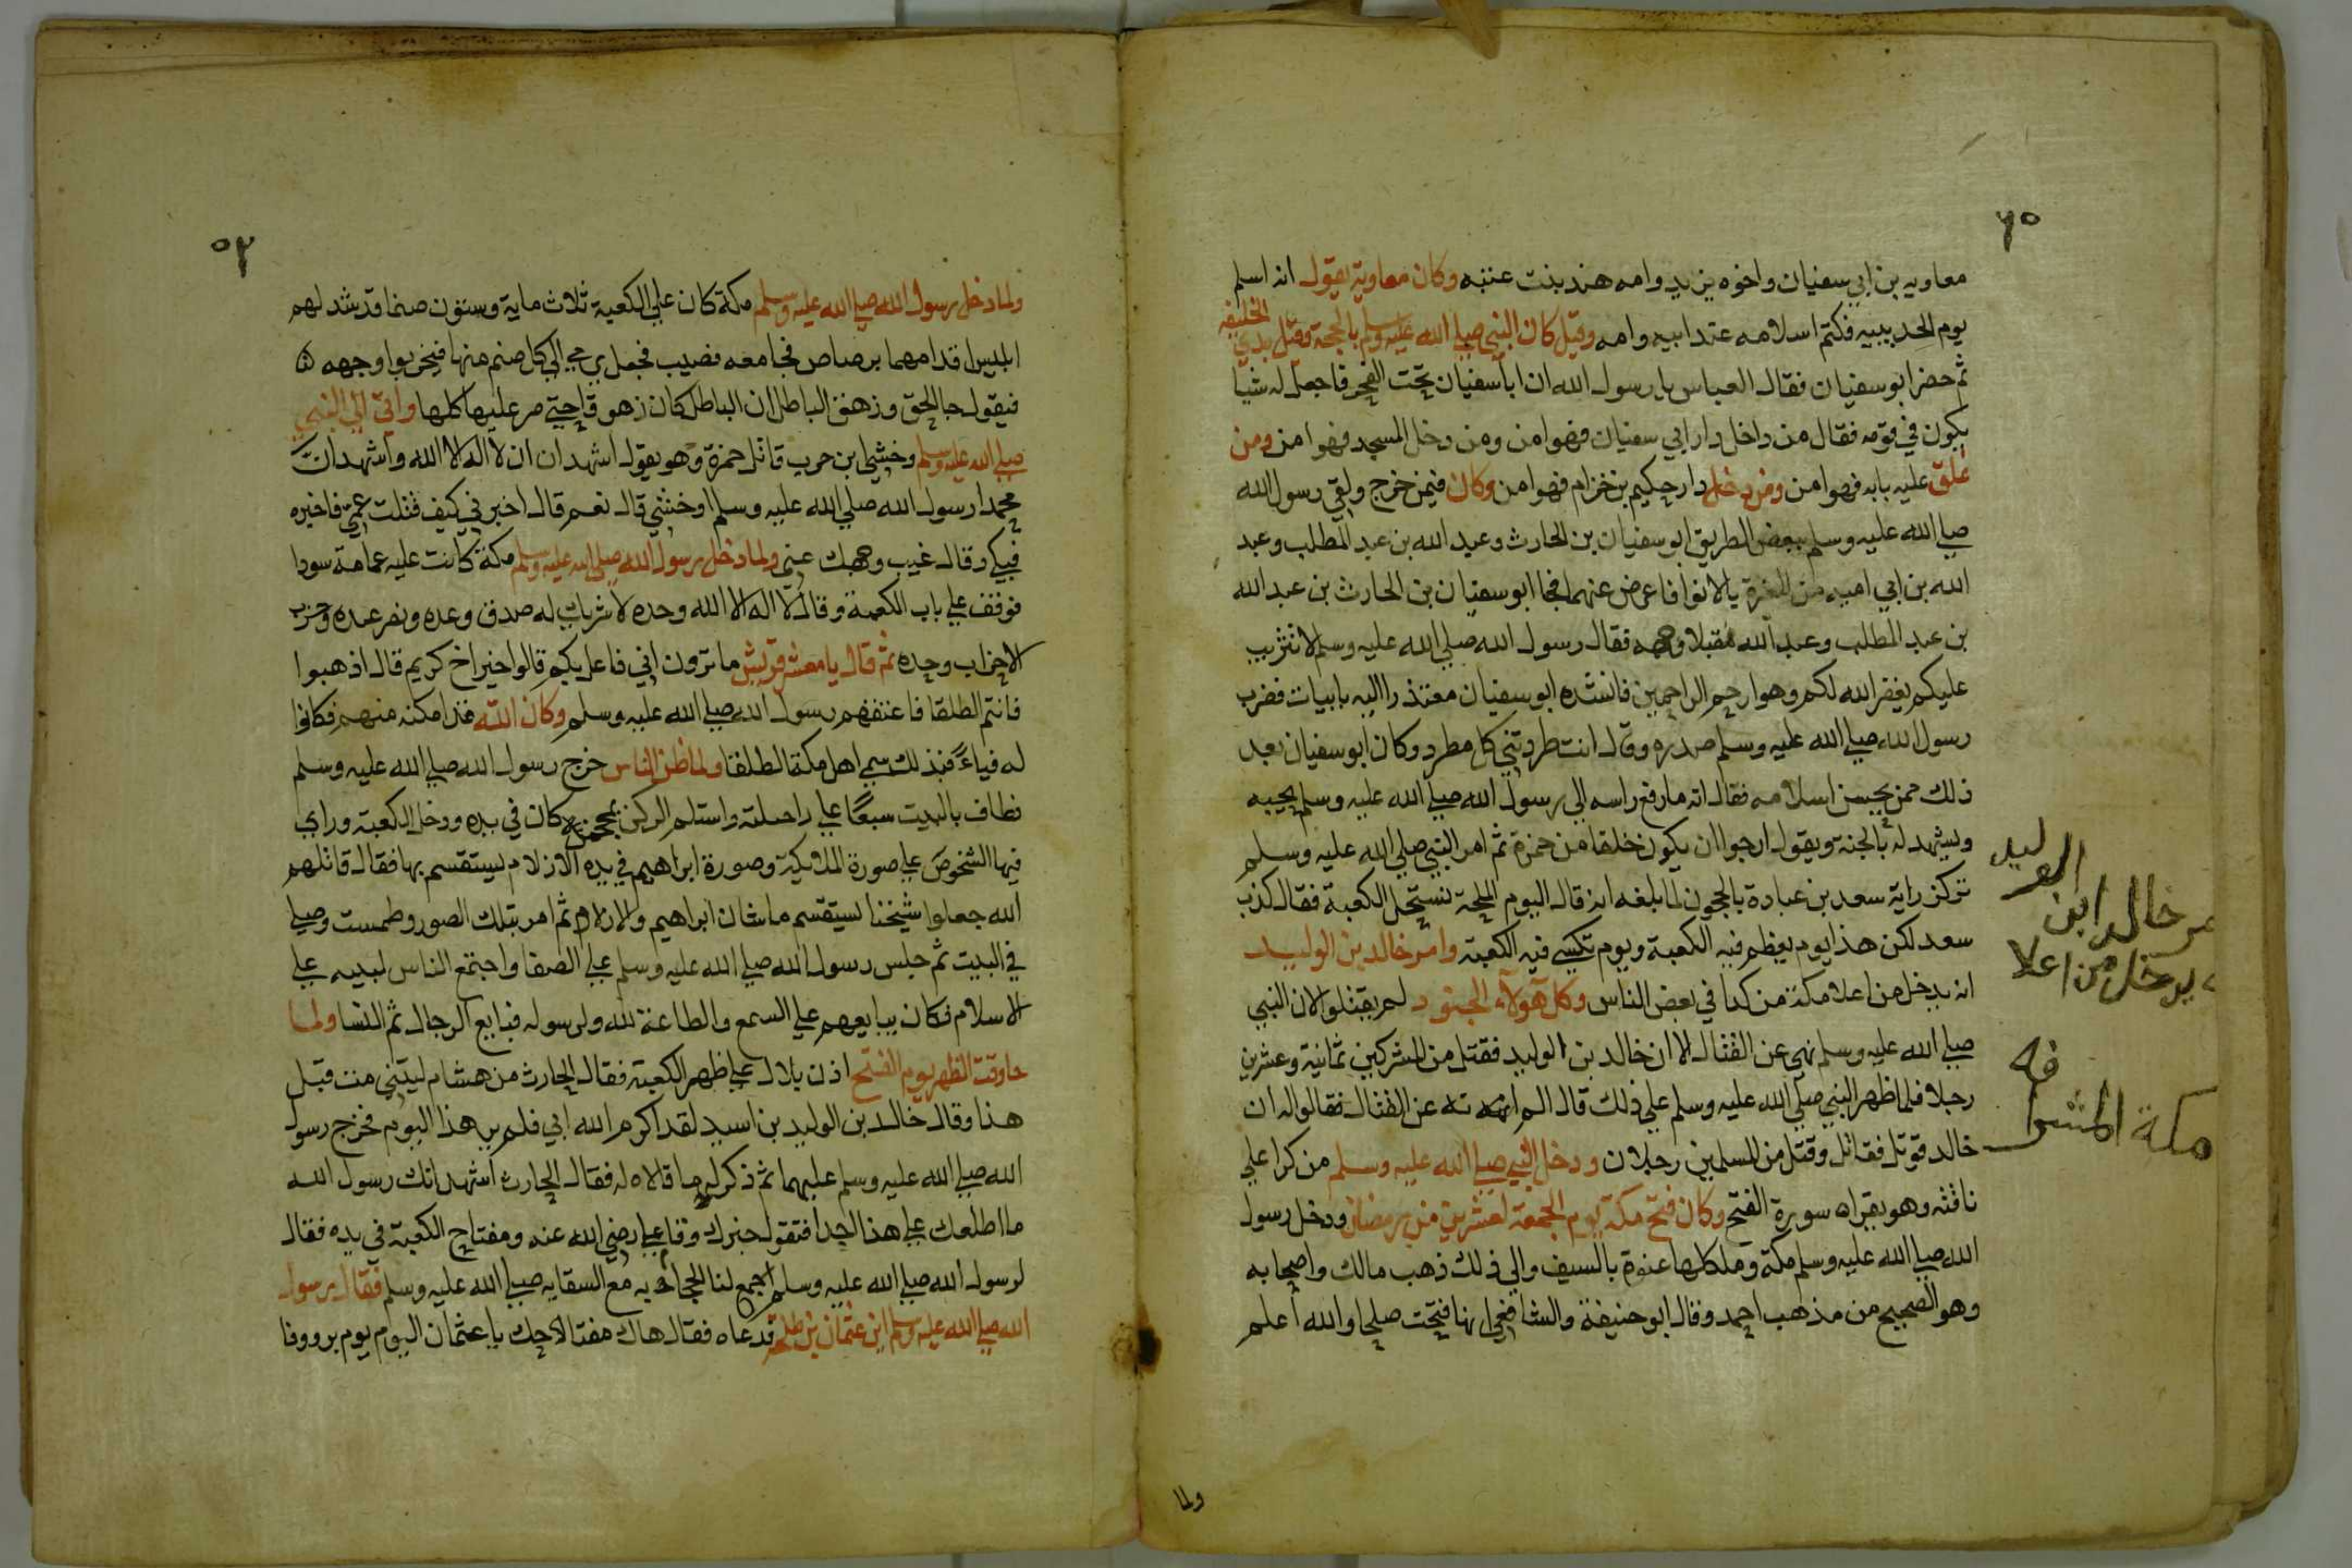 ٦٥
معاويه بن ابي سفيان واخوه يزيد وامه هند بنت عتبه وكان معاوية يقول انه اسلم
يوم الحديبيه فكتم اسلامه عند ابيه وامه وقيل كان النبي صلي الله عليه وسلم بالجحفة وقيل بذي الحليفه
ثم حضر ابو سفيان فقال العباس يا رسول الله ان ابا سفيان يحب الفخر فاجعل له شيا
يكون في قومه فقال من داخل دار ابي سفيان فهو امن ومن دخل المسجد فهو امن ومن
غلق عليه بابه فهو امن ومن دخل دار حكيم بن خزام فهو امن وكان فيمن خرج ولقي رسول الله
صلي الله عليه وسلم ببعض الطريق ابو سفيان بن الحارث وعبد الله بن عبد المطلب وعبد
الله بن ابي اميه بن المغرة بالابوا فاعرض عنهما فجا ابو سفيان بن الحارث بن عبد الله
بن عبد المطلب وعبد الله مقبلا وجهه فقال رسول الله صلي الله عليه وسلم لا تثريب
عليكم يغفر الله لكم وهو ارحم الراحمين فانشده ابو سفيان معتذرا اليه بابيات فضرب
رسول الله صلي الله عليه وسلم صدره وقال انت طردتني كل مطرد وكان ابو سفيان بعد
ذلك ممن يحسن اسلامه فقال انه ما رفع راسه الي رسول الله صلي الله عليه وسلم يحبه
ويشهد له بالجنة ويقول ارجوا ان يكون خلفا من حمزة ثم امر النبي صلي الله عليه وسلم
تركز راية سعد بن عبادة بالحجون لما بلغه انه قال اليوم الملحمة تستحل الكعبة فقال كذب
سعد لكن هذا يوم يعظم فيه الكعبة ويوم تكسي فيه الكعبة وامر خالد بن الوليد
انه يدخل من اعلا مكة من كدا في بعض الناس وكل هولاء الجنود لم يقتلوا لان النبي
صلي الله عليه وسلم نهي عن القتال الا ان خالد بن الوليد فقتل من المشركين ثمانية وعشرين
رجلا فلما ظهر النبي صلي الله عليه وسلم علي ذلك قال الم انهه عن القتال فقالوا له ان
خالد قوتل فقاتل وقتل من المسلمين رجلان ودخل النبي صلي الله عليه وسلم من كدا علي
ناقته وهو يقراه سورة الفتح وكان فتح مكة يوم الجمعة لعشرين من رمضان ودخل رسول
الله صلي الله عليه وسلم مكة وملكها عنوة بالسيف والي ذلك ذهب مالك واصحابه
وهو الصحيح من مذهب احمد وقال ابو حنيفة والشافعي انها فتحت صلحا والله اعلم
ولما
الوليد
مر خالد ابن
يدخل من اعلا
مكة المشرفه
٥٢
ولما دخل رسول الله صلي الله عليه وسلم مكة كان علي الكعبة ثلاث ماية وستون صنما قد شد لهم
ابليس اقدامهما برصاص فجا معه قضيب فجعل يرمي الي كل صنم منها فيخر بوا وجهه
فيقول جا الحق وزهق الباطل ان الباطل كان زهوقا حتي مر عليها كلها واتي الي النبي
صلي الله عليه وسلم وخشي ابن حرب قاتل حمزة وهو يقول اشهد ان ان لا اله الا الله واشهد ان
محمدا رسول الله صلي الله عليه وسلم اوخشي قال نعم قال اخبرني كيف قتلت عمي فاخبره
فبكي وقال غيب وجهك عني ولما دخل رسول الله صلي الله عليه وسلم مكة كانت عليه عمامة سودا
فوقف علي باب الكعبة وقال لا اله الا الله وحده لا شريك له صدق وعده ونصر عبده وحزب
الاحزاب وحده ثم قال يا معشر قريش ما ترون اني فاعل بكم قالوا خيرا اخ كريم قال اذهبوا
فانتم الطلقا فاعتقهم رسول الله صلي الله عليه وسلم وكان الله قد امكنه منهم فكانوا
له فياء فبذلك سمي اهل مكة الطلقا ولما ظن الناس خرج رسول الله صلي الله عليه وسلم
فطاف بالبيت سبعا علي راحلته واستلم الركن بمحجن كان في يده ودخل الكعبة وراي
فيها الشخوص علي صورة الملايكة وصورة ابراهيم في يده الازلام ليستقسم بها فقال قاتلهم
الله جعلوا شيخنا ليستقسم ما شان ابراهيم والازلام ثم امر بتلك الصور وطمست وصلي
في البيت ثم جلس رسول الله صلي الله عليه وسلم علي الصفا واجتمع الناس لبديه علي
الاسلام فكان يبايعهم علي السمع والطاعنة لله ولرسوله فبايع الرجال ثم النسا ولما
جا وقت الظهر يوم الفتح اذن بلال علي ظهر الكعبة فقال الحارث من هشام ليتني مت قبل
هذا وقال خالد بن الوليد بن اسيد لقد اكرم الله ابي فلم ير هذا اليوم فخرج رسول
الله صلي الله عليه وسلم عليهما ثم ذكر لهما قالاه له فقال الحارث اشهد انك رسول الله
ما اطلعك علي هذا احدا فنقول خبرك وقام علي رضي الله عنه ومفتاح الكعبة في يده فقال
لرسول الله صلي الله عليه وسلم اجمع لنا الحجابه مع السقايه صلي الله عليه وسلم فقال رسول
الله صلي الله عليه وسلم اين عثمان بن طلحة فدعاه فقال هاك مفتاحك يا عثمان اليوم يوم بر ووفا